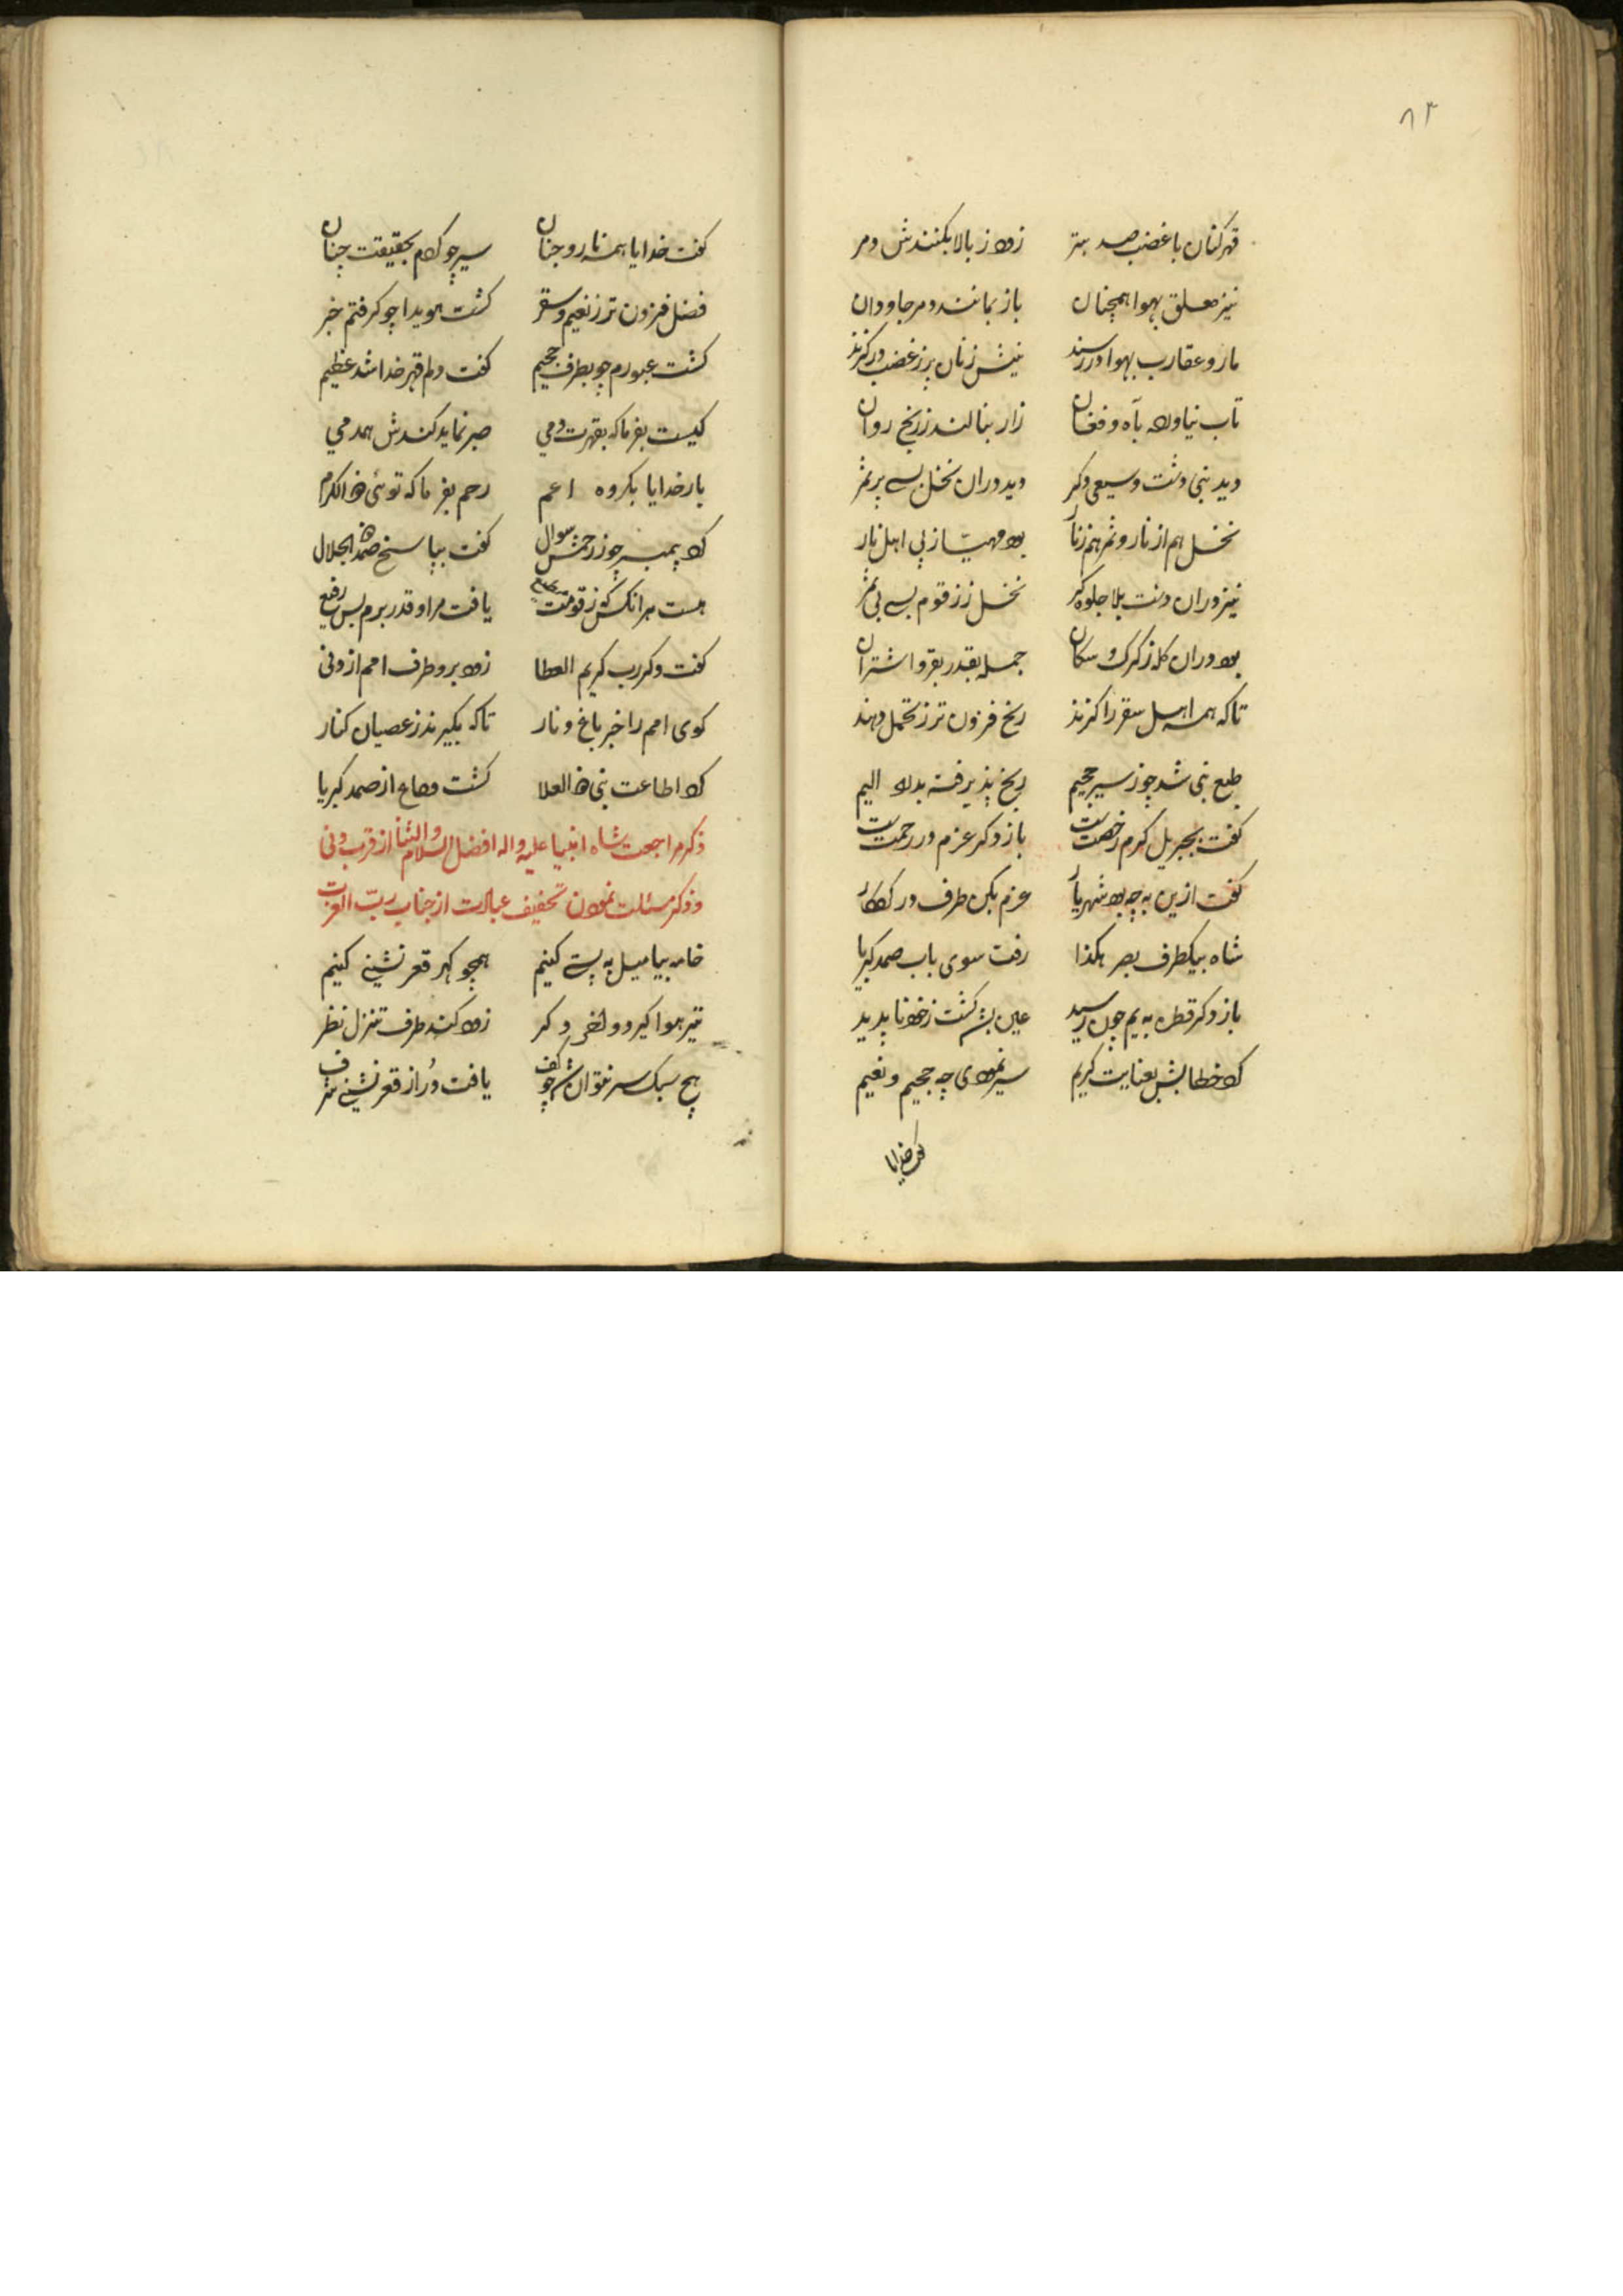 ۸۳
قهر کنان با غضب صد بتر زود ز بالا بکنندش دمر
نیز معلق بهوا همچنان باز بمانند دمر جاودان
مار و عقارب بهوا در رسند نیش زنان پر ز غضب در کزند
تاب نیاورد بآه و فغان زار بنالند ز رنج روان
دید نبی دشت وسیعی دکر دید دران نخل بسی پر ثمر
نخل هم از نار و ثمر هم ز نار بود مهیّا ز پی اهل نار
نیز دران دشت بلا جلوه کر نخل ز زقوم بسی بی ثمر
بود دران کله ز کرک و سکان جمله بقدر بقر و اشتران
تاکه همه اهل سقر را کزند رنج فزون تر ز تحمل دهند
طبع نبی شد چو ز سیر جحیم رنج پذیرفته بدرد الیم
کفت بجبریل کرم رخصتت باز دکر عزم در رحمتت
کفت ازین به چه بود شهریار عزم بکن طرف در کردکار
شاه بیکطرف بصر هکذا رفت سوی باب صمد کبریا
باز دکر قطره به یم چون رسید عین بشر کشت ز خود ناپدید
کرد خطابش بعنایت کریم سیر نمودی چه جحیم و نعیم
کفت خدایا
کفت خدایا همه نار و جنان سیر چو کردم بحقیقت چنان
فضل فزون تر ز نعیم و سقر کشت هویدا چو کرفتم خبر
کشت عبورم چو بطرف جحیم کفت دلم قهر خدا شد عظیم
کیست بفرما که بقهرت دمی صبر نماید کندش همدمی
بار خدایا بکروه امم رحم بفرما که توئی ذو الکرم
کرد پیمبر چو ز رحمش سوال کفت بپاسخ صمد ذو الجلال
هست هر انکش که ز قومت مطیع یافت مر او قدر برم بس رفیع
کفت دکر رب کریم العطا زود برو طرف امم از دنی
کوی امم را خبر باغ و نار تاکه بکیرند ز عصیان کنار
کرد اطاعت نبی ذو العلا کشت وداع از صمد کبریا
ذکر مراجعت شاه انبیا علیه و اله افضل السلام و الثنا از قرب دنی
و ذکر مسئلت نمودن تخفیف عبادت از جناب ربّ العزت
خامه بیا میل به پستی کنیم همچو کهر قعر نشینی کنیم
تیر هوا کیر دو لختی دکر زود کند طرف تنزل نظر
هیچ سبک سر نتوان شد چو کف یافت دُر از قعر نشینی شرف